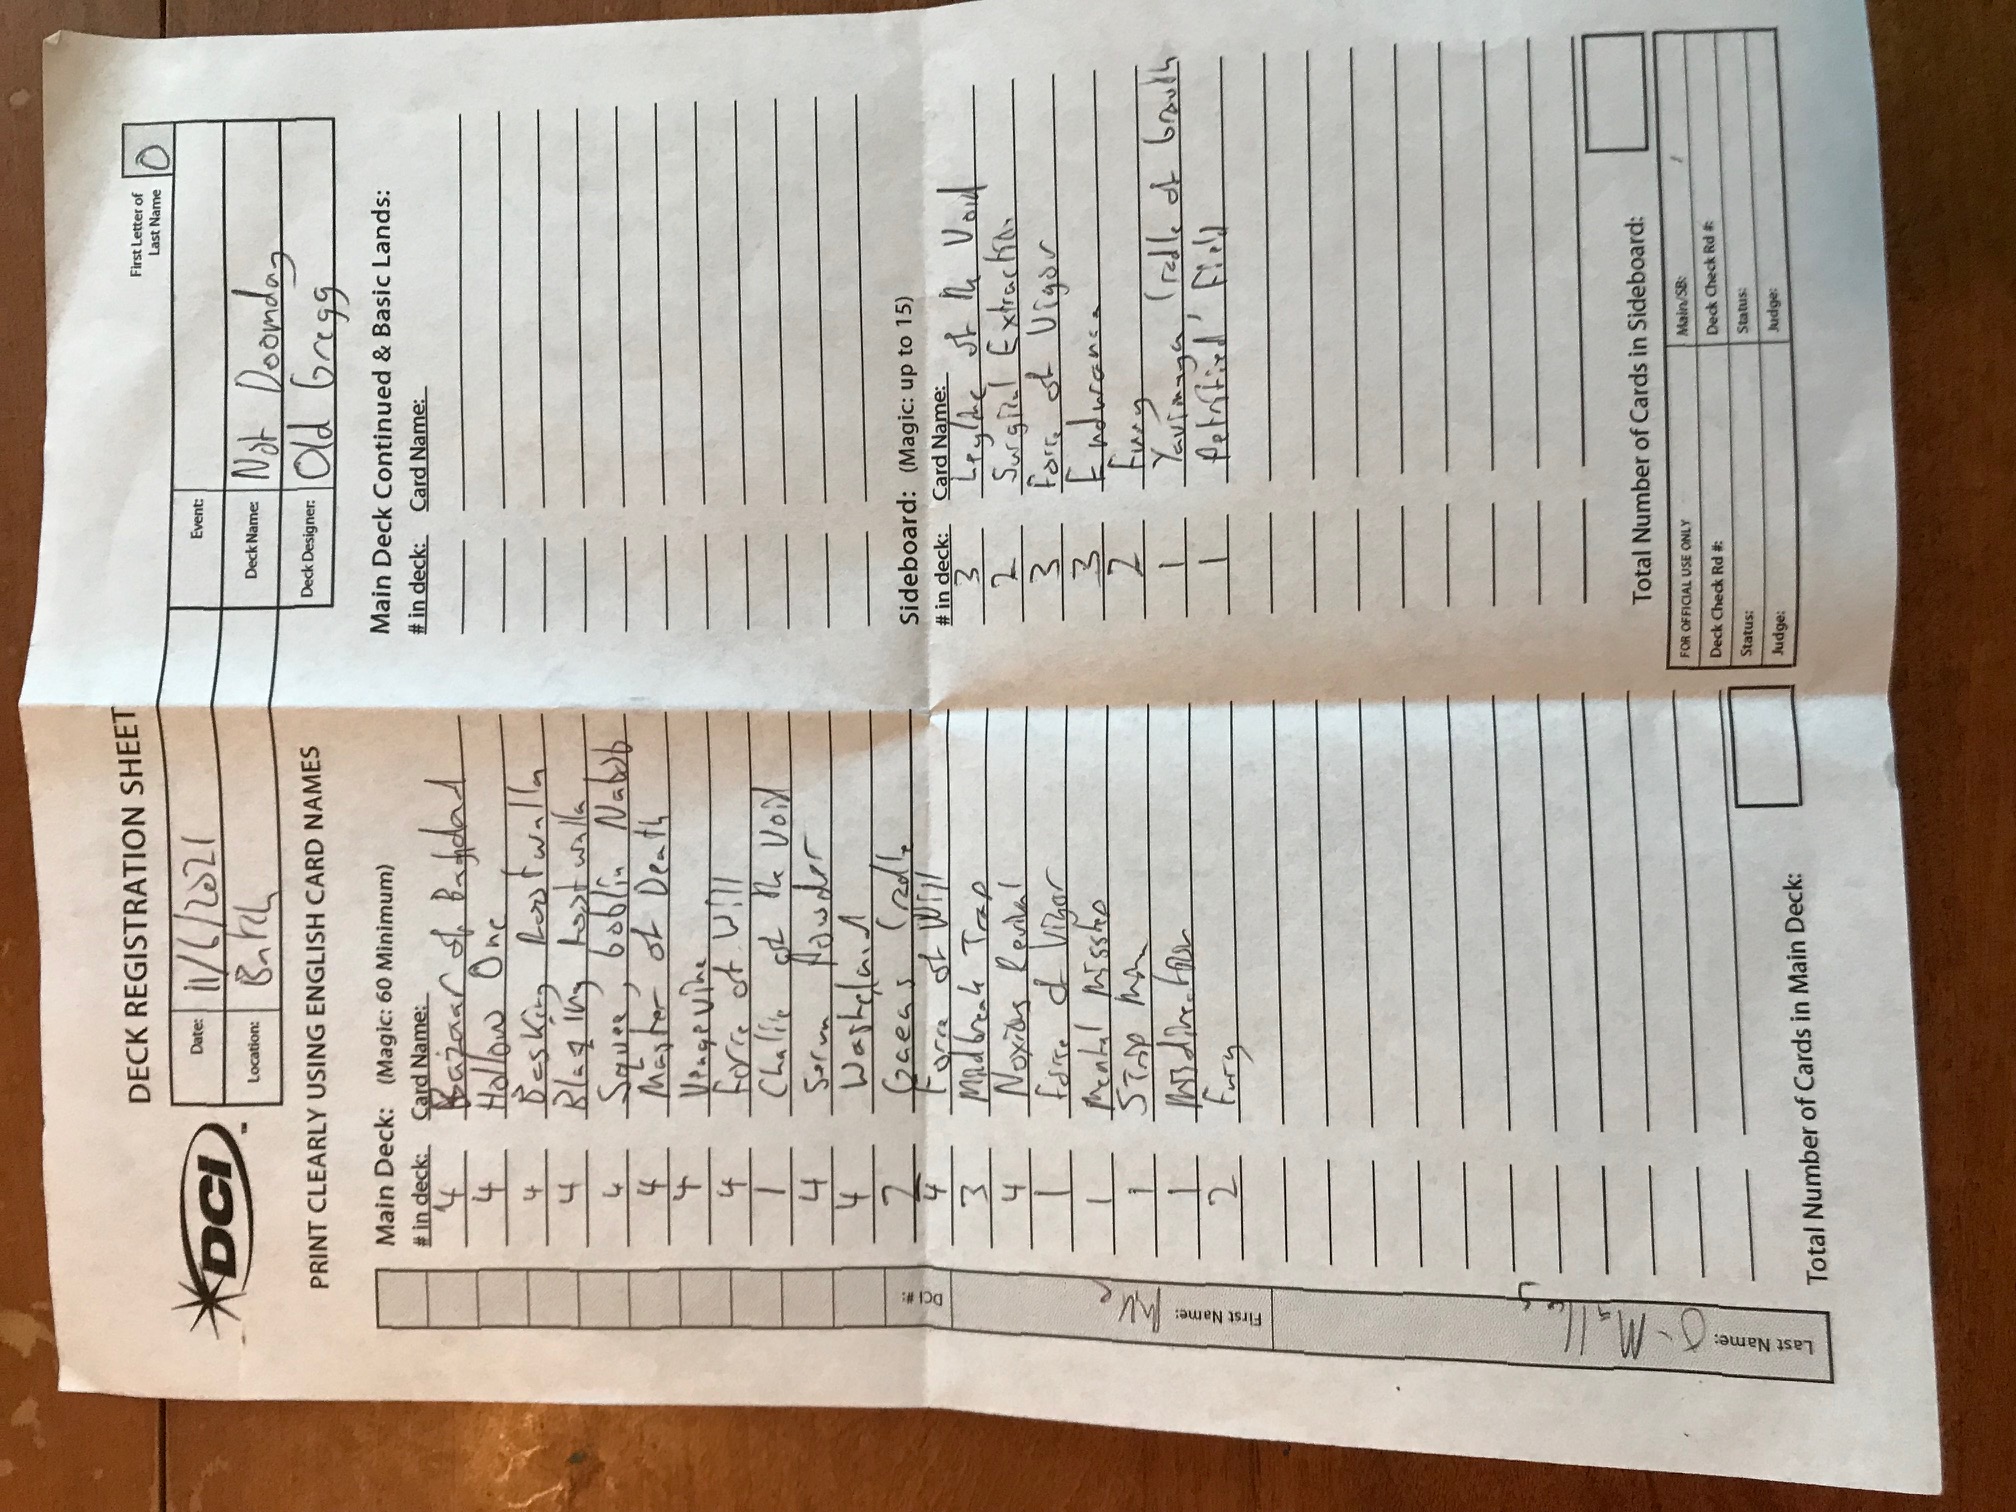 DECK REGISTRATION SHEET
First Letter of Last Name O
DCI
Date: 11/6/2021
Location: Batch
Event:
Deck Name: Not Doomday
Deck Designer: Old Gregg
PRINT CLEARLY USING ENGLISH CARD NAMES
Main Deck: (Magic: 60 Minimum)
# in deck: Card Name:
4 Bazaar of Baghdad
4 Hollow One
4 Basking Rootwalla
4 Blazing Rootwalla
4 Squee, Goblin Nabob
4 Master of Death
4 Vengevine
4 Force of Will
1 Chalice of the Void
4 Serum Powder
4 Wasteland
2 Gaea's Cradle
4 Force of Will
3 Mindbreak Trap
4 Noxious Revival
1 Force of Vigor
1 Mental Misstep
1 Strip Mine
1 Misdirection
2 Fury
Total Number of Cards in Main Deck:
DCI #:
First Name: Mike
Last Name: O-Malley
Main Deck Continued & Basic Lands:
# in deck: Card Name:
Sideboard: (Magic: up to 15)
# in deck: Card Name:
3 Leyline of the Void
2 Surgical Extraction
3 Force of Vigor
3 Endurance
2 Fury
1 Yavimaya, Cradle of Growth
1 Petrified Field
Total Number of Cards in Sideboard:
FOR OFFICIAL USE ONLY
Main/SB: /
Deck Check Rd #:
Deck Check Rd #:
Status:
Status:
Judge:
Judge: